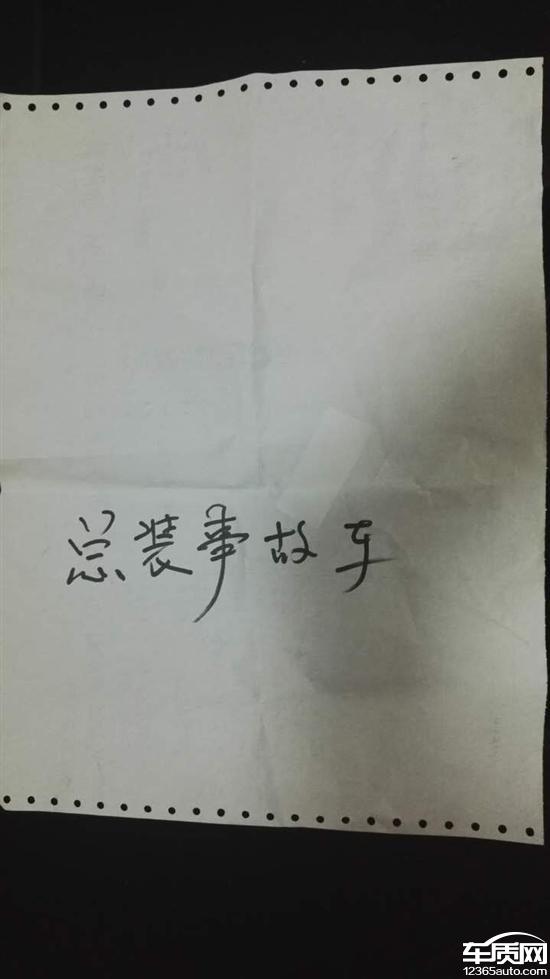 总装事故车
车质网
12365auto.com